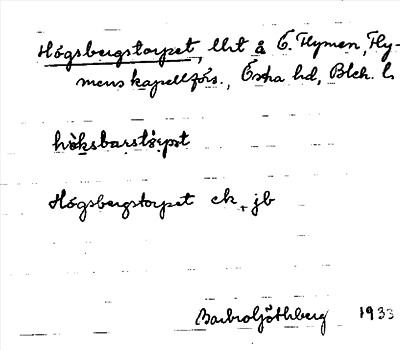 Högsbergstorpet, lht å Ö. Flymen, Fly-
mens kapellförs., Östra hd, Blek. l.
hö̀ksbarstorpət
Högsbergstorpet ek, jb
Barbro Ljöthberg 1933